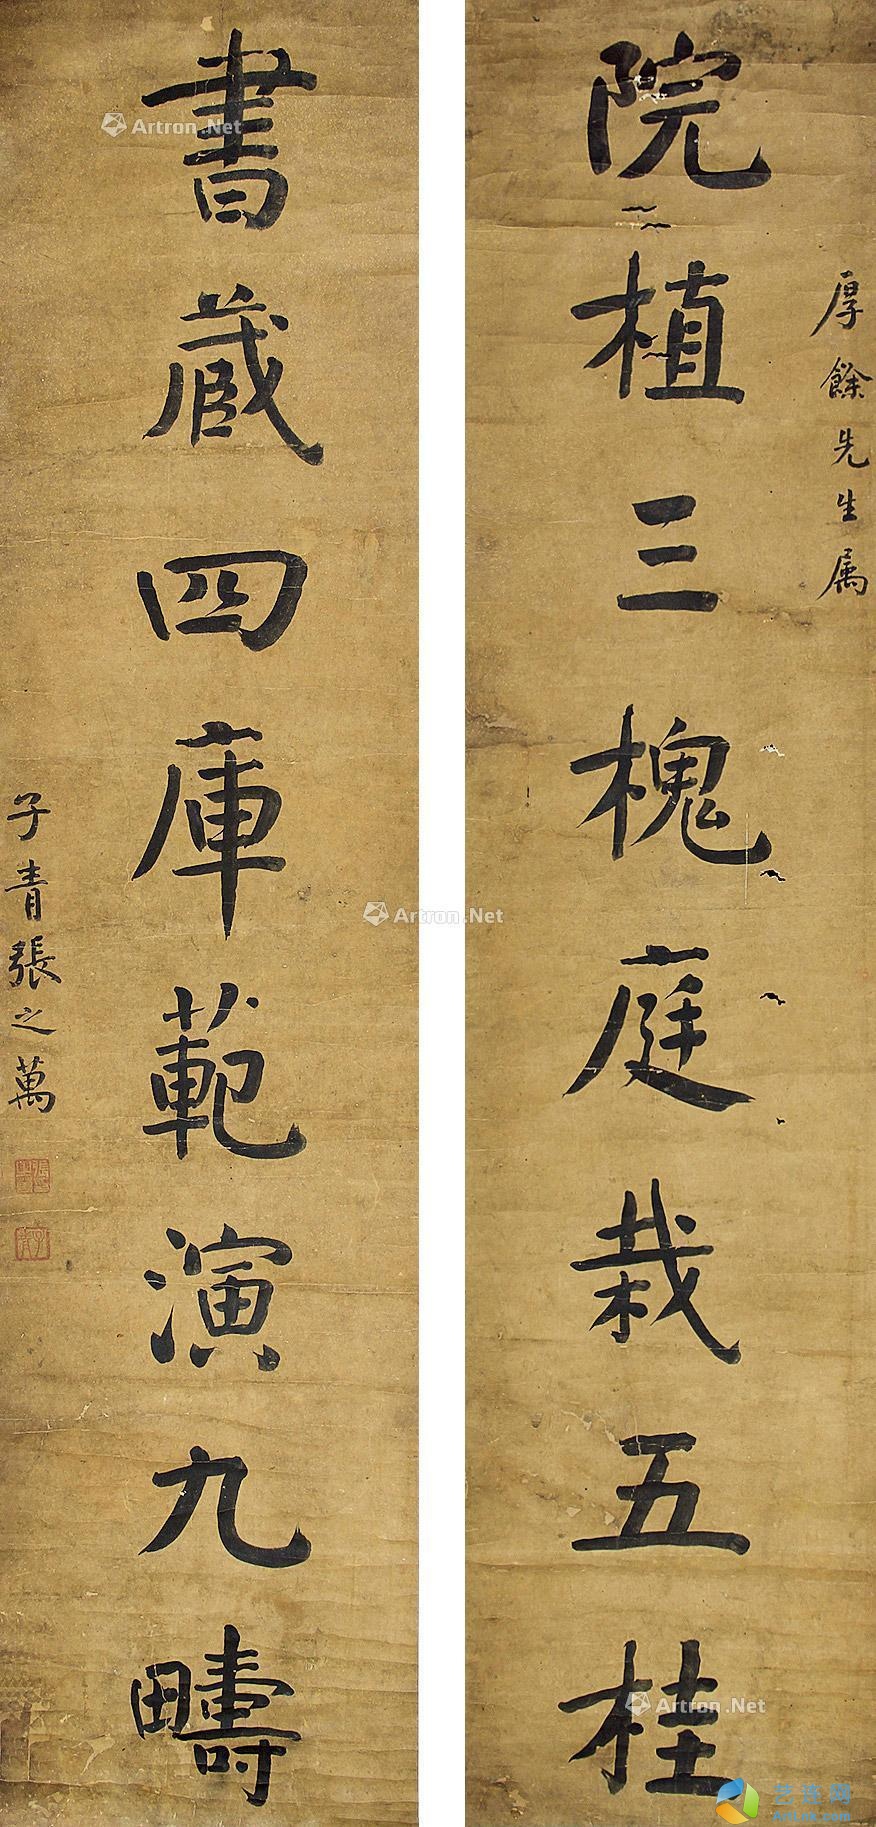 厚餘先生属
院植三槐庭栽五桂
書蔵四庫範演九疇
子青張之萬
Artron.Net
Artron.Net
Artron.Net
艺连网
ArtLnk.Com